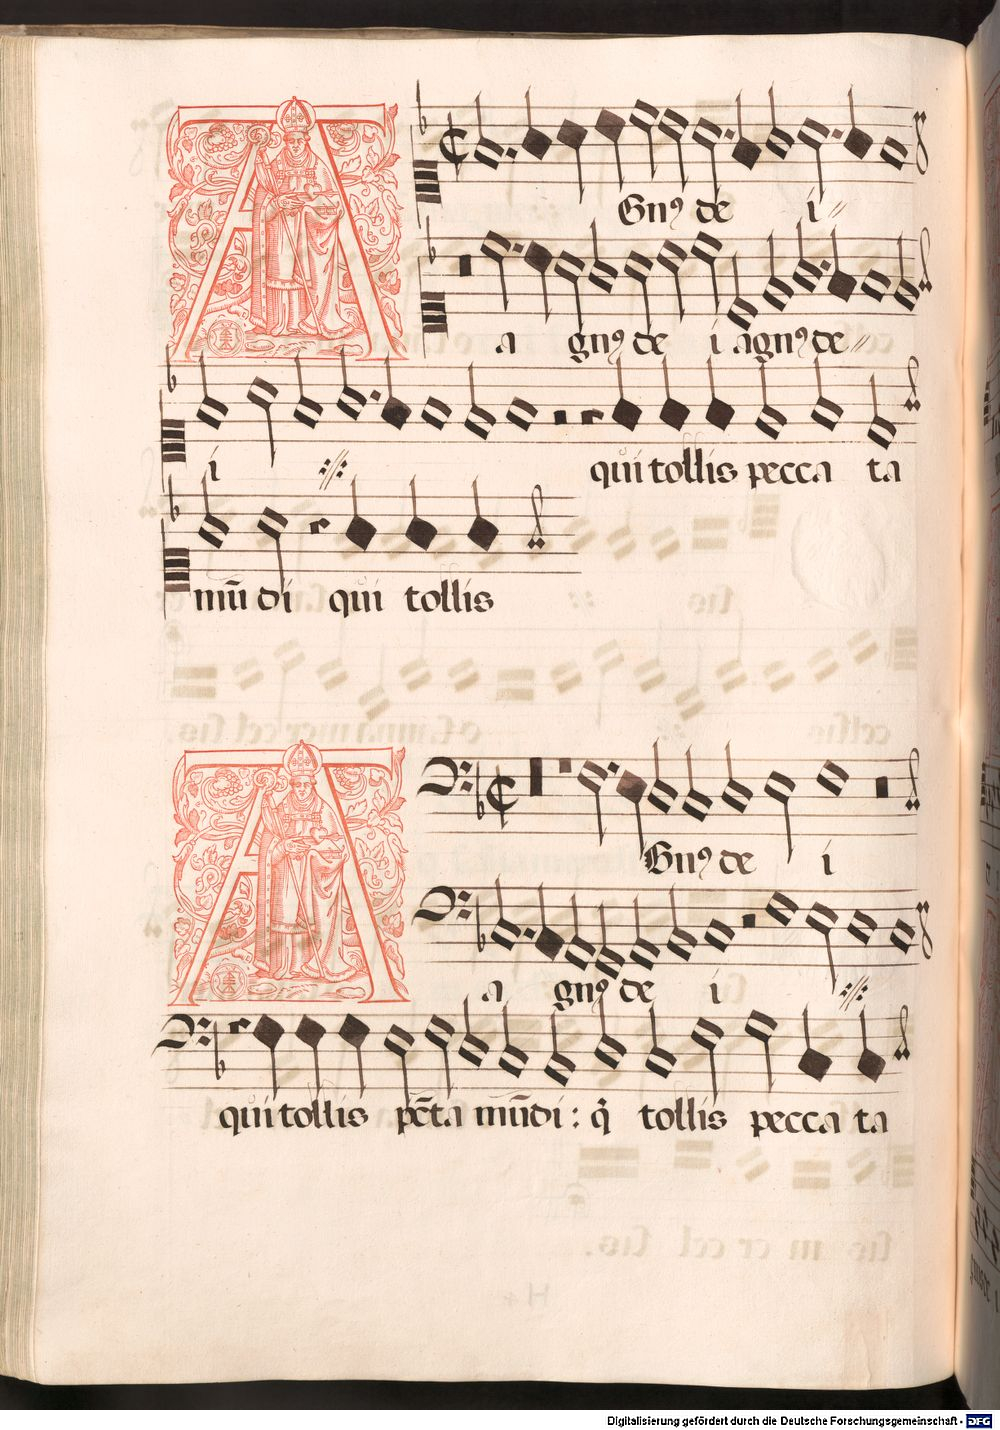 AGnꝰ de i〃
a gnꝰ de i agnꝰ de〃
i :〃: qui tollis pecca ta
mūdi qui tollis
AGnꝰ de i
a gnꝰ de i :〃:
qui tollis pc̄ta mūdi: q̊ tollis pecca ta
Digitalisierung gefördert durch die Deutsche Forschungsgemeinschaft - DFG